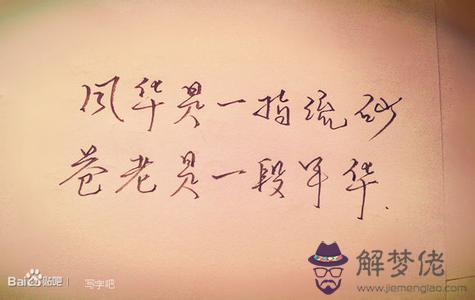 风华是一指流砂
苍老是一段年华.
Bai du 贴吧 写字吧
解梦佬
www.jiemenglao.com